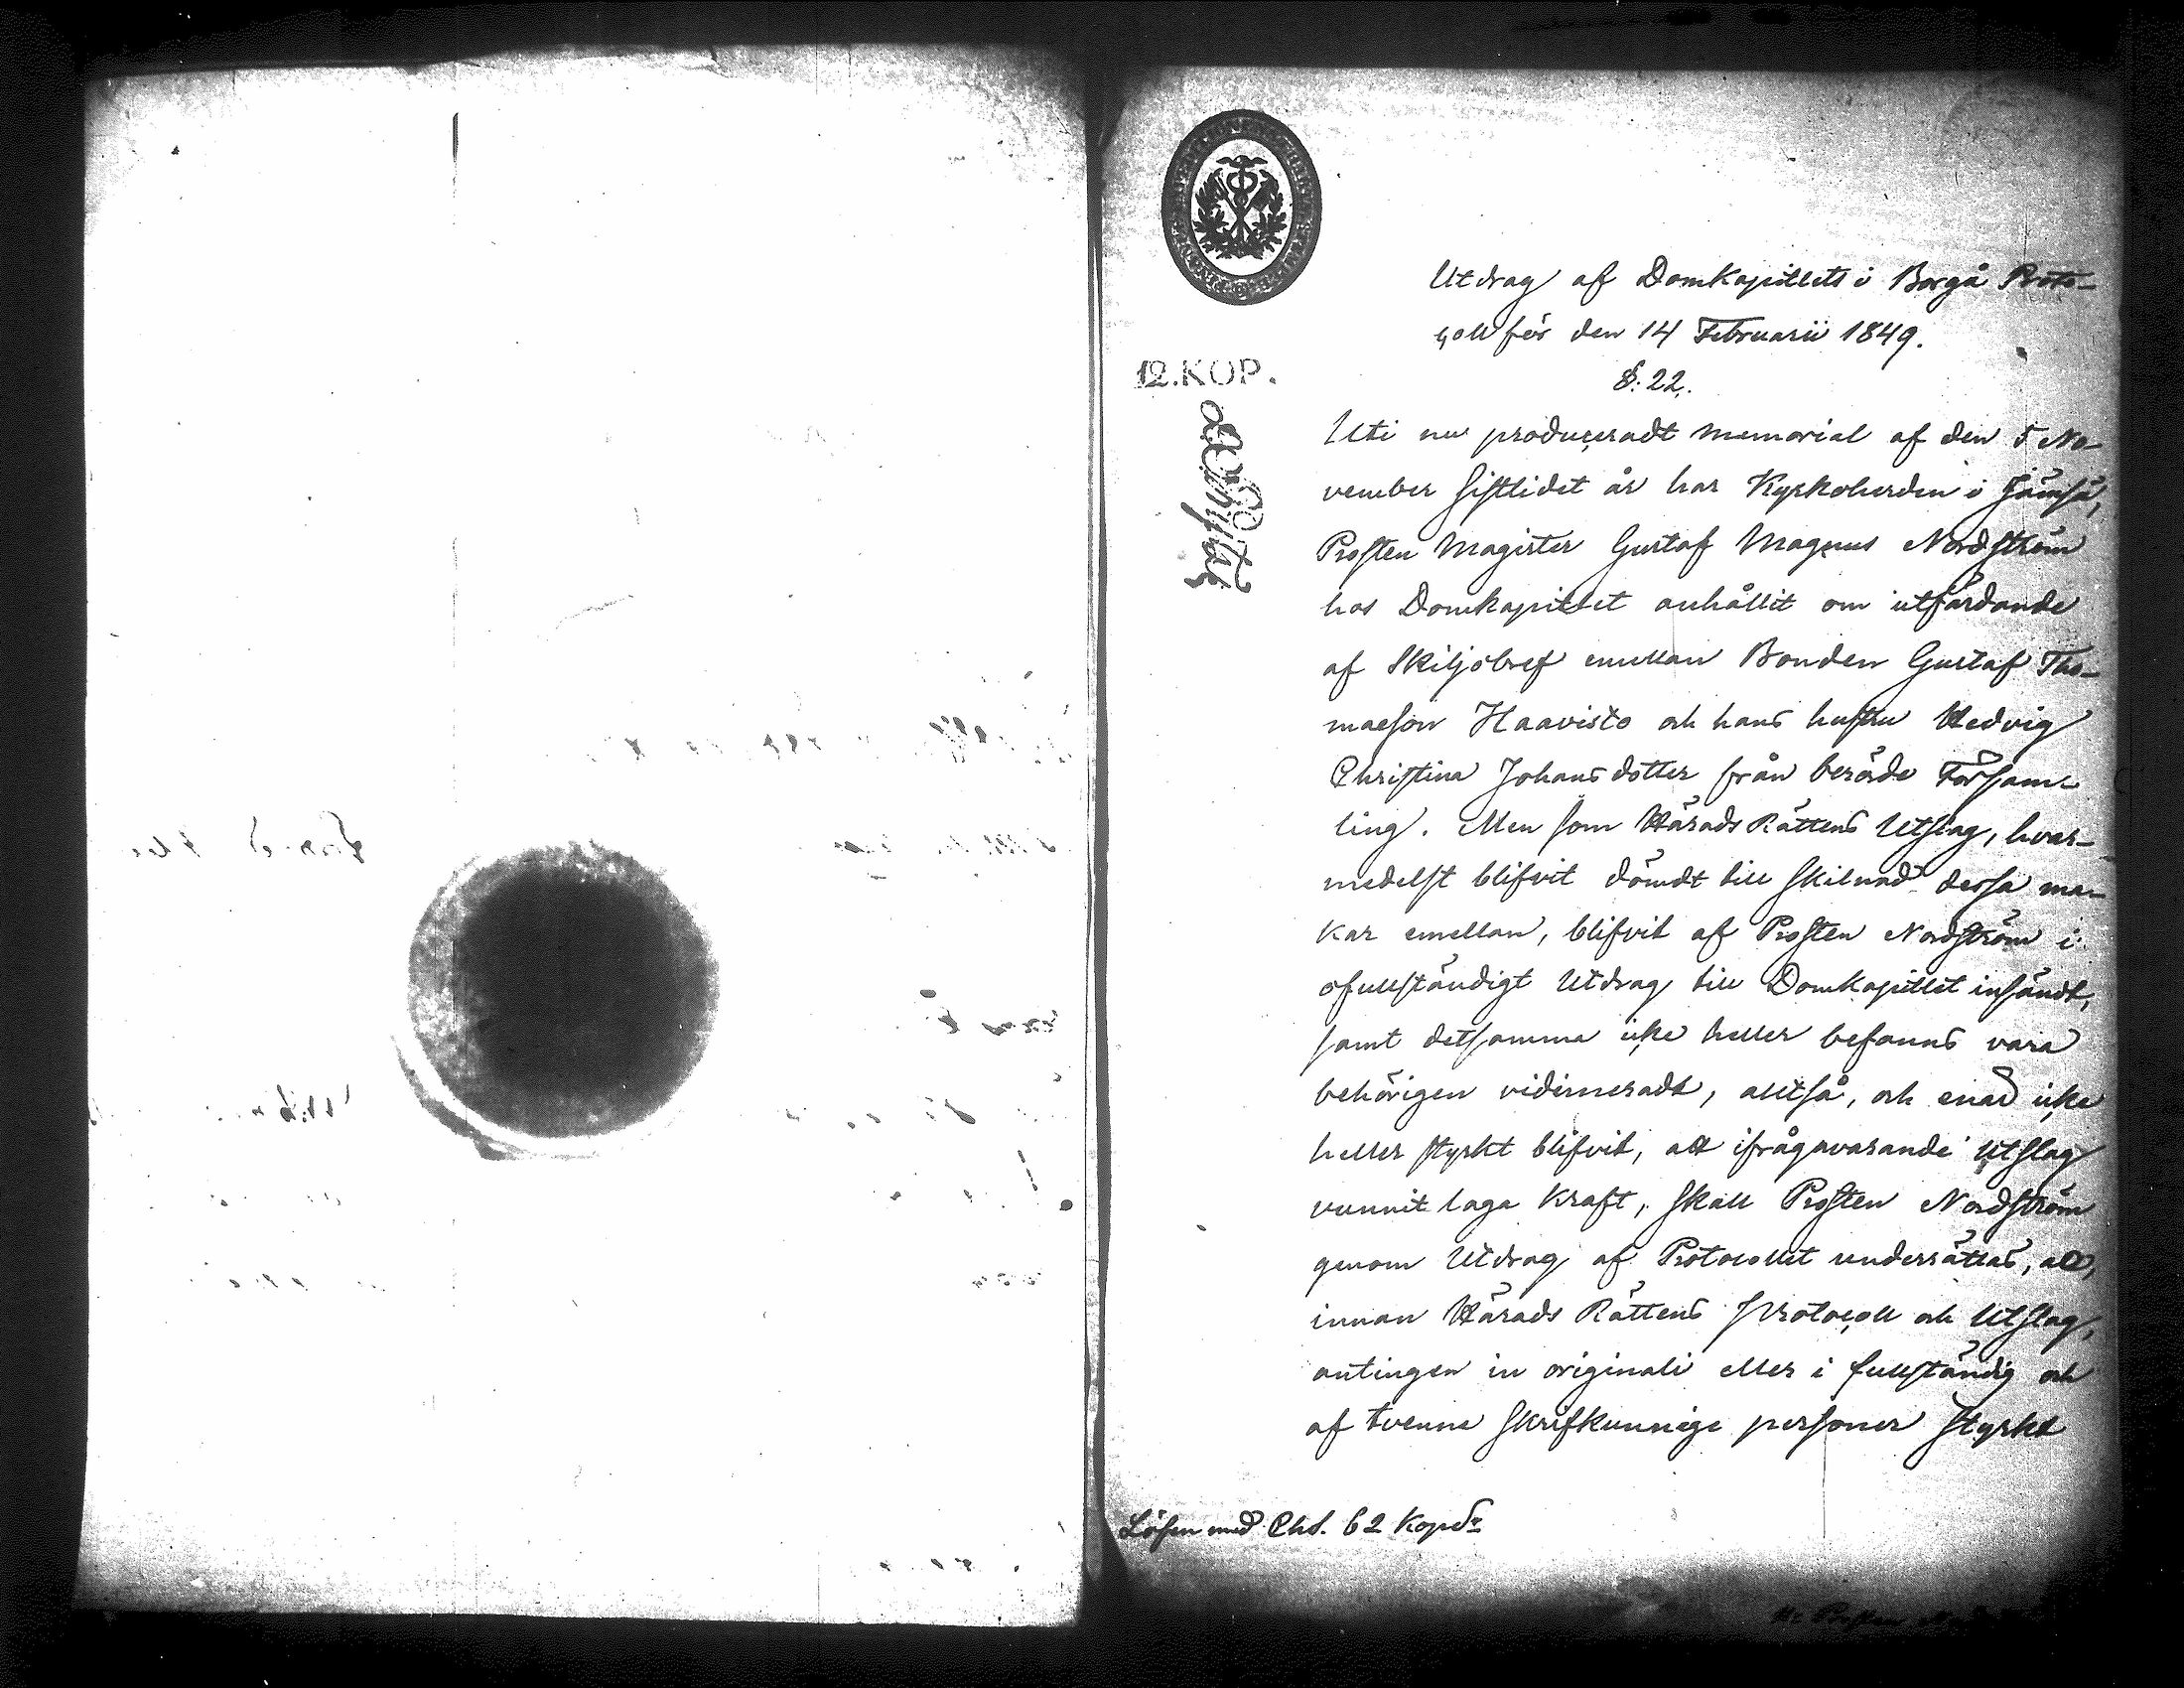 Utdrag af Domkapitlets i Borgå Proto-
coll för den 14 Februarii 1849.
§. 22.
12.KOP.
Uti nu produceradt memorial af den 5 No-
vember sistlidet år har Kyrkoherden i Jämsä,
Prosten Magister Gustaf Magnus Nordström
hos Domkapitlet anhållit om utfärdande
af Skiljobref emellan Bonden Gustaf Tho-
maeson Haavisto och hans hustru Hedvig
Christina Johansdotter från berörde Försam-
ling. Men som Härads Rättens Utslag, hvar-
medelst blifvit dömdt till skilnad dessa ma-
kar emellan, blifvit af Prosten Nordström i
ofullständigt Utdrag till Domkapitlet insändt,
samt detsamma icke heller befanns vara
behörigen vidimeradt, alltså, och enär icke
heller styrkt blifvit, att ifrågavarande Utslag
vunnit laga kraft, skall Prosten Nordström
genom Utdrag af Protocollet underrättas, att,
innan Härads Rättens Protocoll och Utslag,
antingen in originali eller i fullständig och
af tvenne skrifkunnige personer styrkt
Lösen med Chs. 62 Kop. Sr